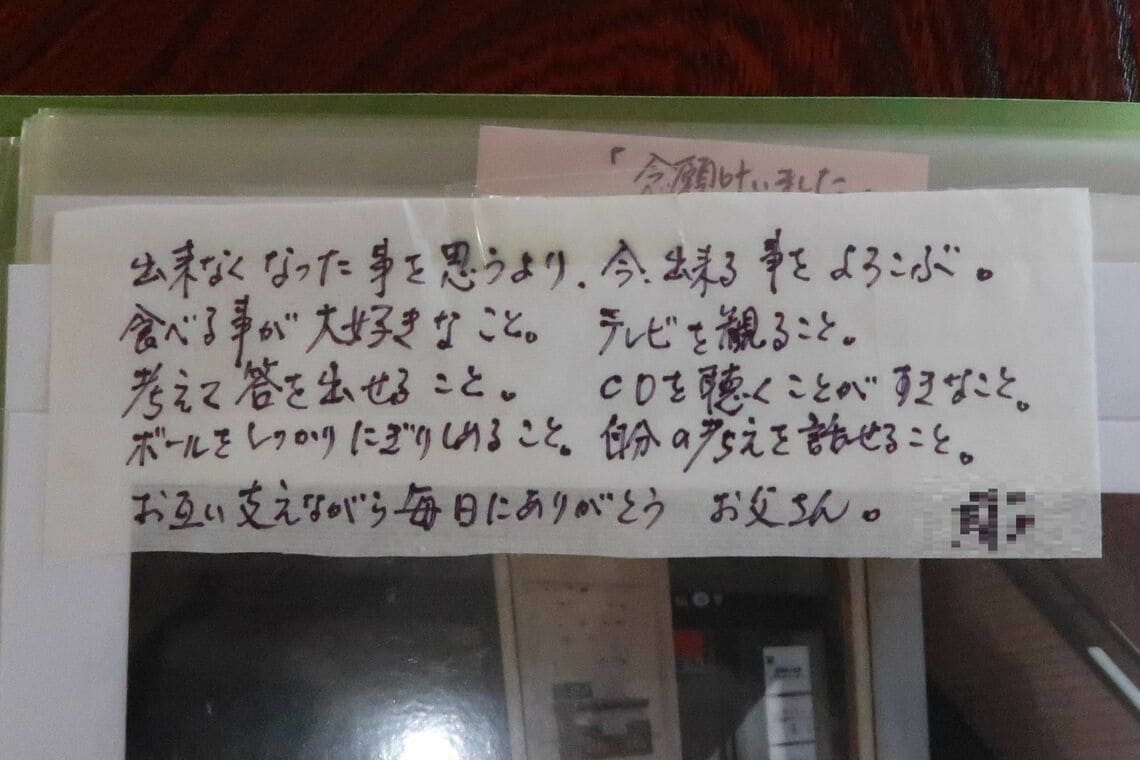 「念願叶いました。
出来なくなった事を思うより、今、出来る事をよろこぶ。
食べる事が大好きなこと。 テレビを観ること。
考えて答を出せること。 CDを聴くことがすきなこと。
ボールをしっかりにぎりしめること。 自分の考えを話せること。
お互い支えながら毎日にありがとう お父さん。